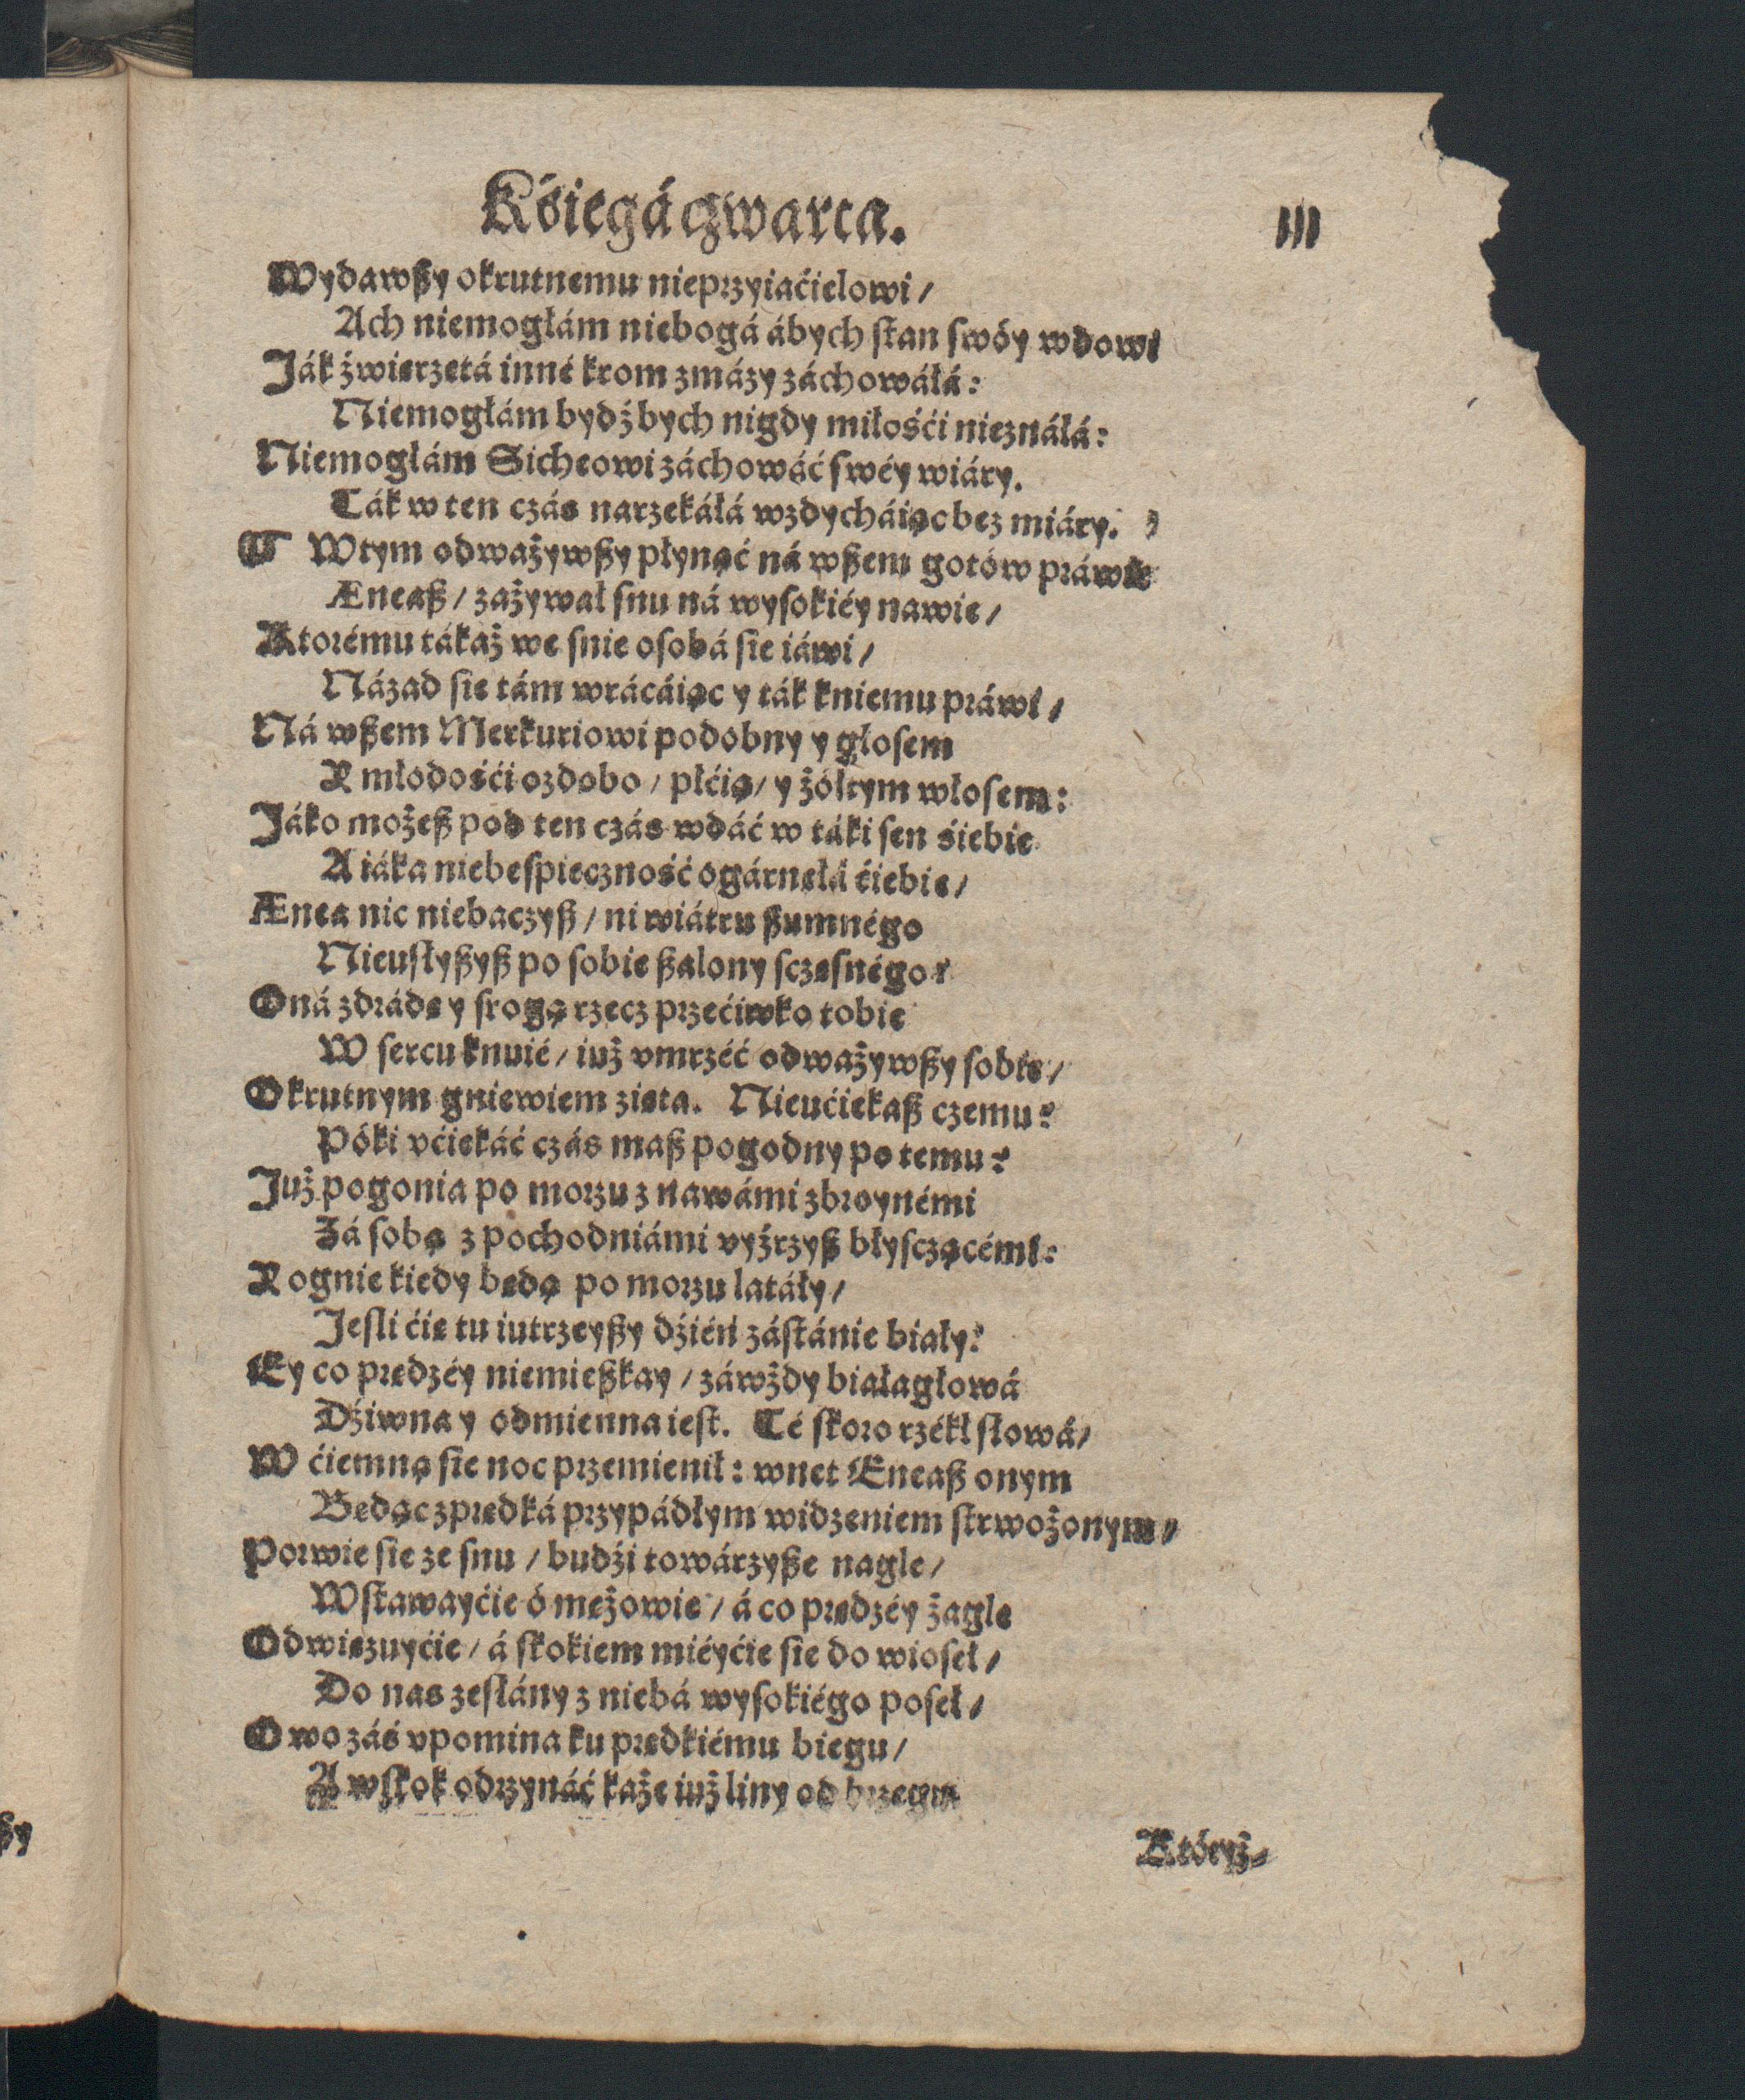 Kśięgá czwarta. 111
Wydawßy okrutnemu nieprzyiaćielowi /
Ach niemogłám niebogá ábych stan swóy wdowi
Ják źwierzętá inné krom zmázy záchowáłá:
Niemogłám bydź bych nigdy miłośći nieználá:
Niemogłám Sicheowi záchowáć swéy wiáry.
Ták w ten czás narzekáłá wzdycháiąc bez miáry.
¶ Wtym odważywßy płynąć ná wßem gotów práwie
Æneaß / zażywał snu ná wysokiéy nawie /
Ktorému tákaż we snie osobá się iáwi /
Názad się tám wrácáiąc y ták kniemu práwi /
Ná wßem Merkuriowi podobny y głosem
Y młodośći ozdobo / płćią / y żółtym włosem:
Jáko możeß pod ten czás wdáć w táki sen śiebie
A iáka niebespieczność ogárnęłá ćiebie /
Ænea nic niebaczyß / ni wiátru ßumnégo
Nieusłyßyß po sobie ßalony sczęsnégo?
Oná zdrádę y srogą rzecz przećiwko tobie
W sercu knuié / iuż vmrzéć odważywßy sobie /
Okrutnym gniewiem zięta. Nieućiekaß czemu?
Póki vćiekáć czás maß pogodny po temu?
Już pogonia po morzu z nawámi zbroynémi
Zá sobą z pochodniámi vyźrzyß błysczącémi:
Y ognie kiedy będą po morzu latáły /
Jesli ćię tu iutrzeyßy dźień zástánie biały?
Ey co prędzéy niemießkay / záwżdy białagłowá
Dźiwna y odmienna iest. Té skoro rzékł słowá /
W ćiemną się noc przemienił: wnet Eneaß onym
Będąc zprędká przypádłym widzeniem strwożonym /
Porwie się ze snu / budźi towárzyße nagle /
Wstawayćie ó mężowie / á co prędzéy żagle
Odwięzuyćie / á skokiem miéyćie się do wioseł /
Do nas zesłány z niebá wysokiégo poseł /
Owo záś vpomina ku prędkiému biegu /
A wskok odrzynáć każe iuż liny od brzegu
Któryż-
ßy